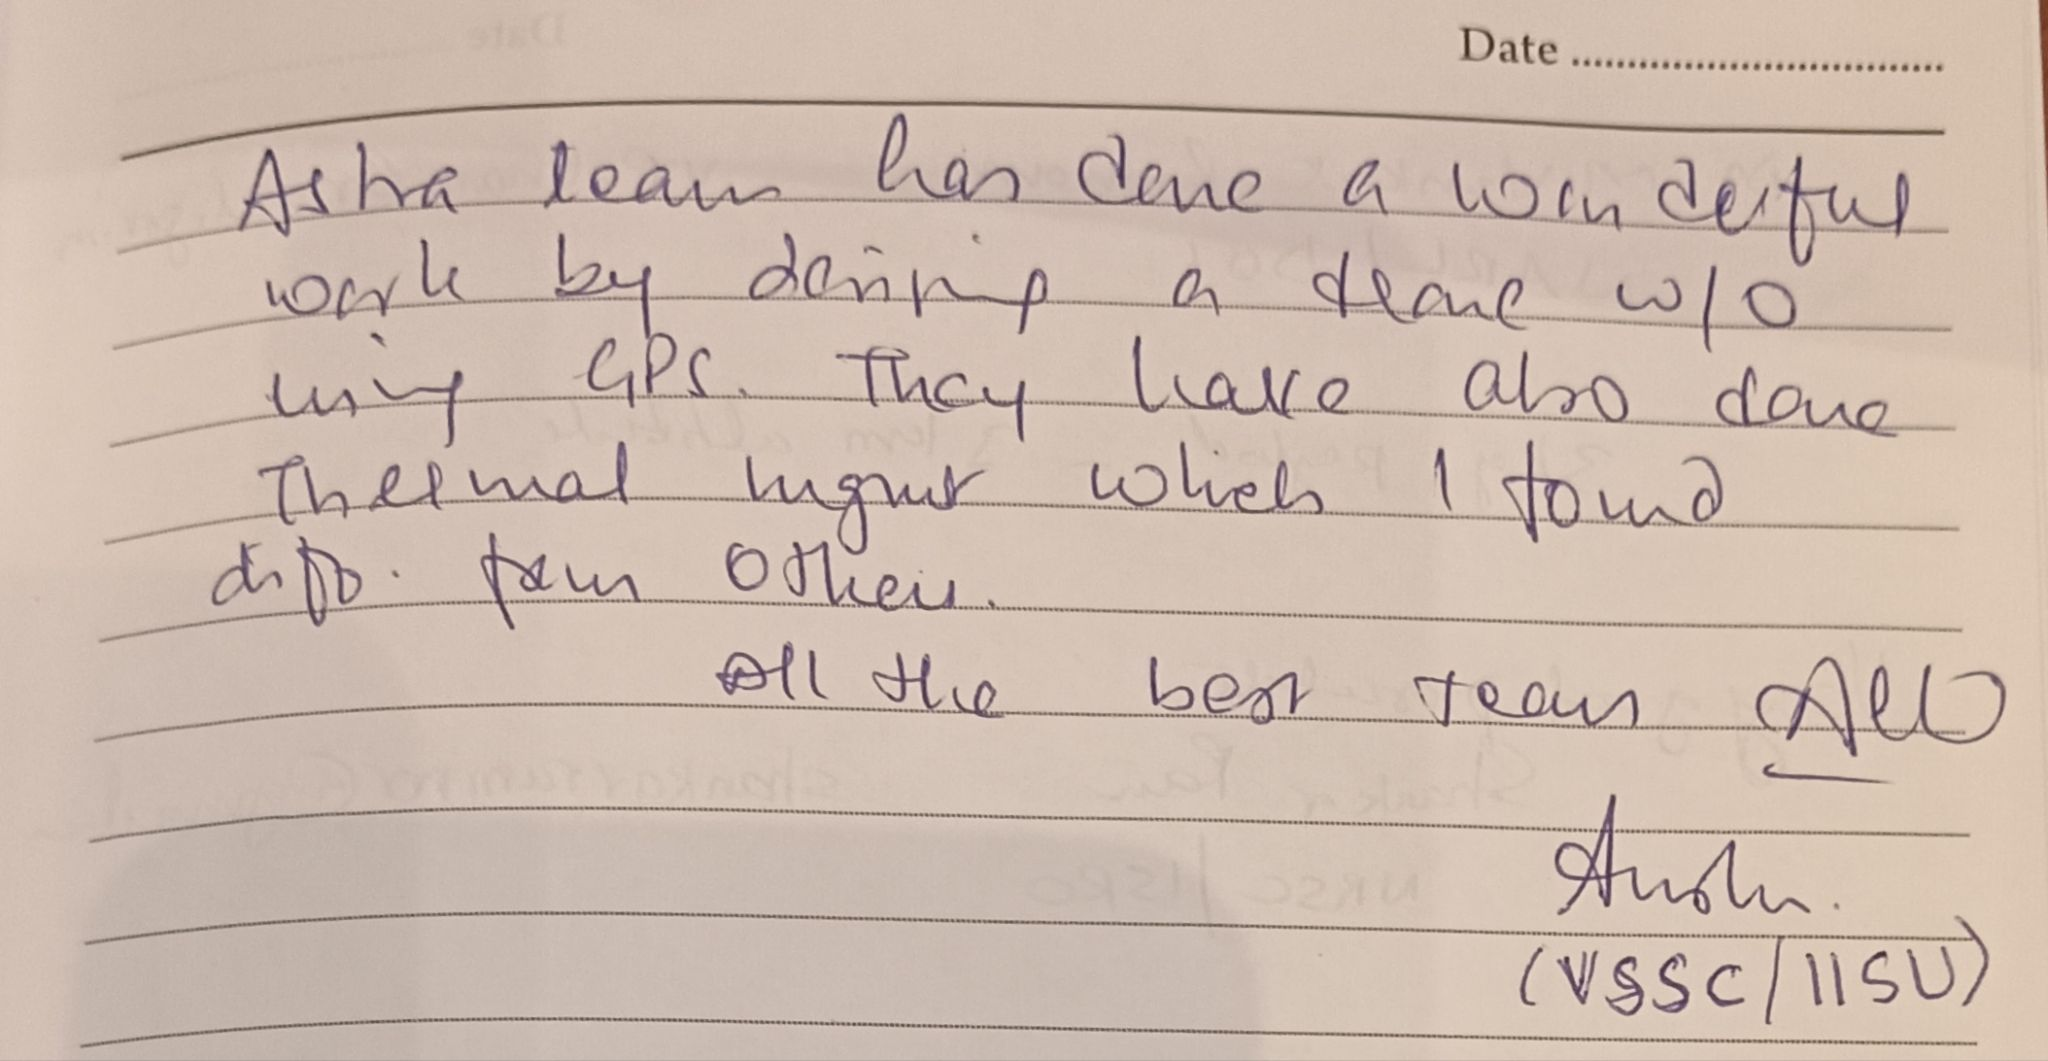 Date
Astra team has done a wonderful
work by desining a drone w/o
using GPS. They have also done
Thermal mgmt which I found
diff. from others.
All the best team
(VSSC/IISU)